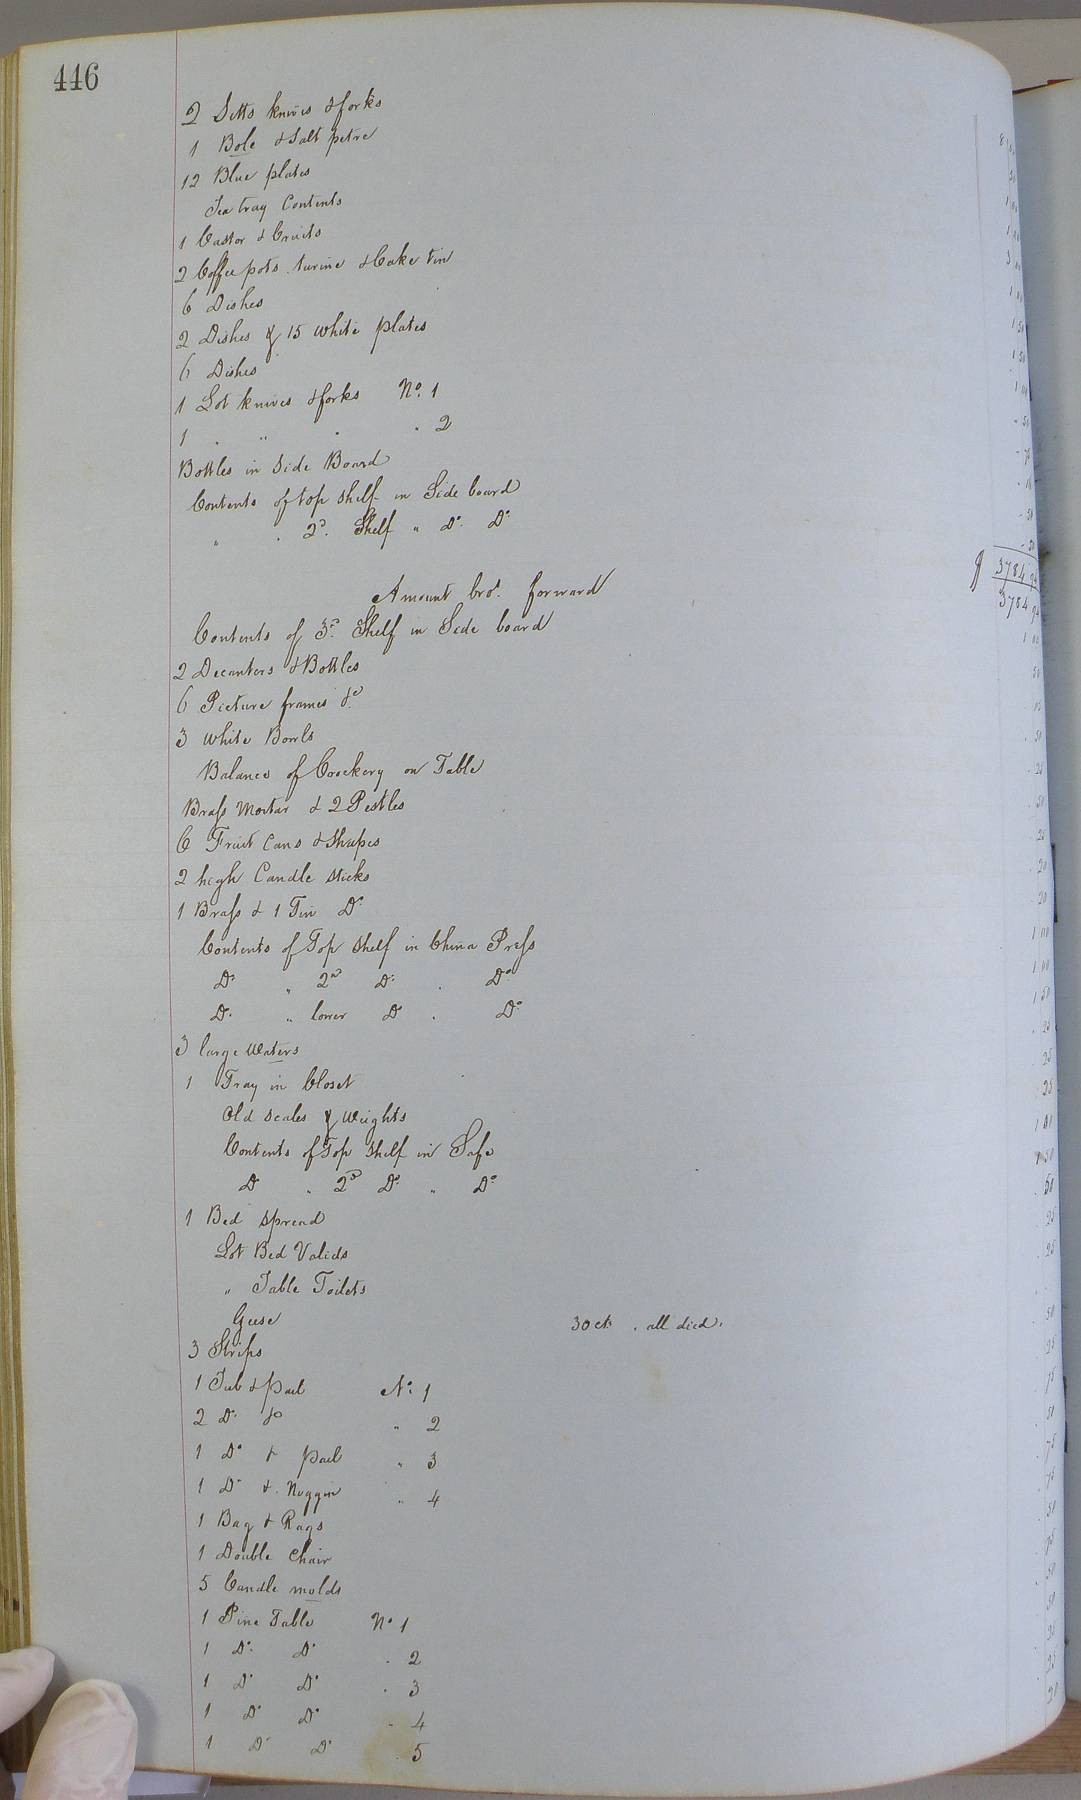 446
2 Setts knives & forks
1 Bole & Salt petre
12 Blue plates
Tea tray Contents
1 Castor & Cruits
2 Coffee pots turine & Cake tin
6 Dishes
2 Dishes & 15 white plates
6 Dishes
1 Lot knives & forks No. 1
1 " " " " 2
Bottles in Side Board
Contents of top shelf in Side board
" " 2d. Shelf " Do. Do.
3784 94
Amount bro't. forward 3784 94
Contents of 3d. Shelf in Side board 1 00
2 Decanters & Bottles 50
6 Picture frames &c
3 white Bowls 50
Balance of Crockery on Table 25
Brass Mortar & 2 Pestles 50
6 Fruit Cans & Shapes 25
2 high Candle sticks 20
1 Brass & 1 Tin Do. 20
Contents of Top shelf in China Press 1 00
Do. " 2nd Do. " Do. 1 00
Do. " lower Do " Do. 1 50
3 large Waters 25
1 Tray in Closet 25
Old scales & weights 25
Contents of Top shelf in Safe
Do " 2d Do. " Do. 50
1 Bed spread 50
Lot Bed Valids 25
" Table Toilets 25
Geese 30 cts. all died.
3 Strips 50
1 Tub & pail No. 1 25
2 Do. Do 2 75
1 Do. & pail " 3 50
1 Do. & Noggin " 4 75
1 Bag & Rags 75
1 Double Chair 50
5 Candle molds 75
1 Pine Table No 1 50
1 Do. Do. " 2 50
1 Do. Do. " 3
1 Do. Do. " 4 25
1 Do. Do. " 5 20